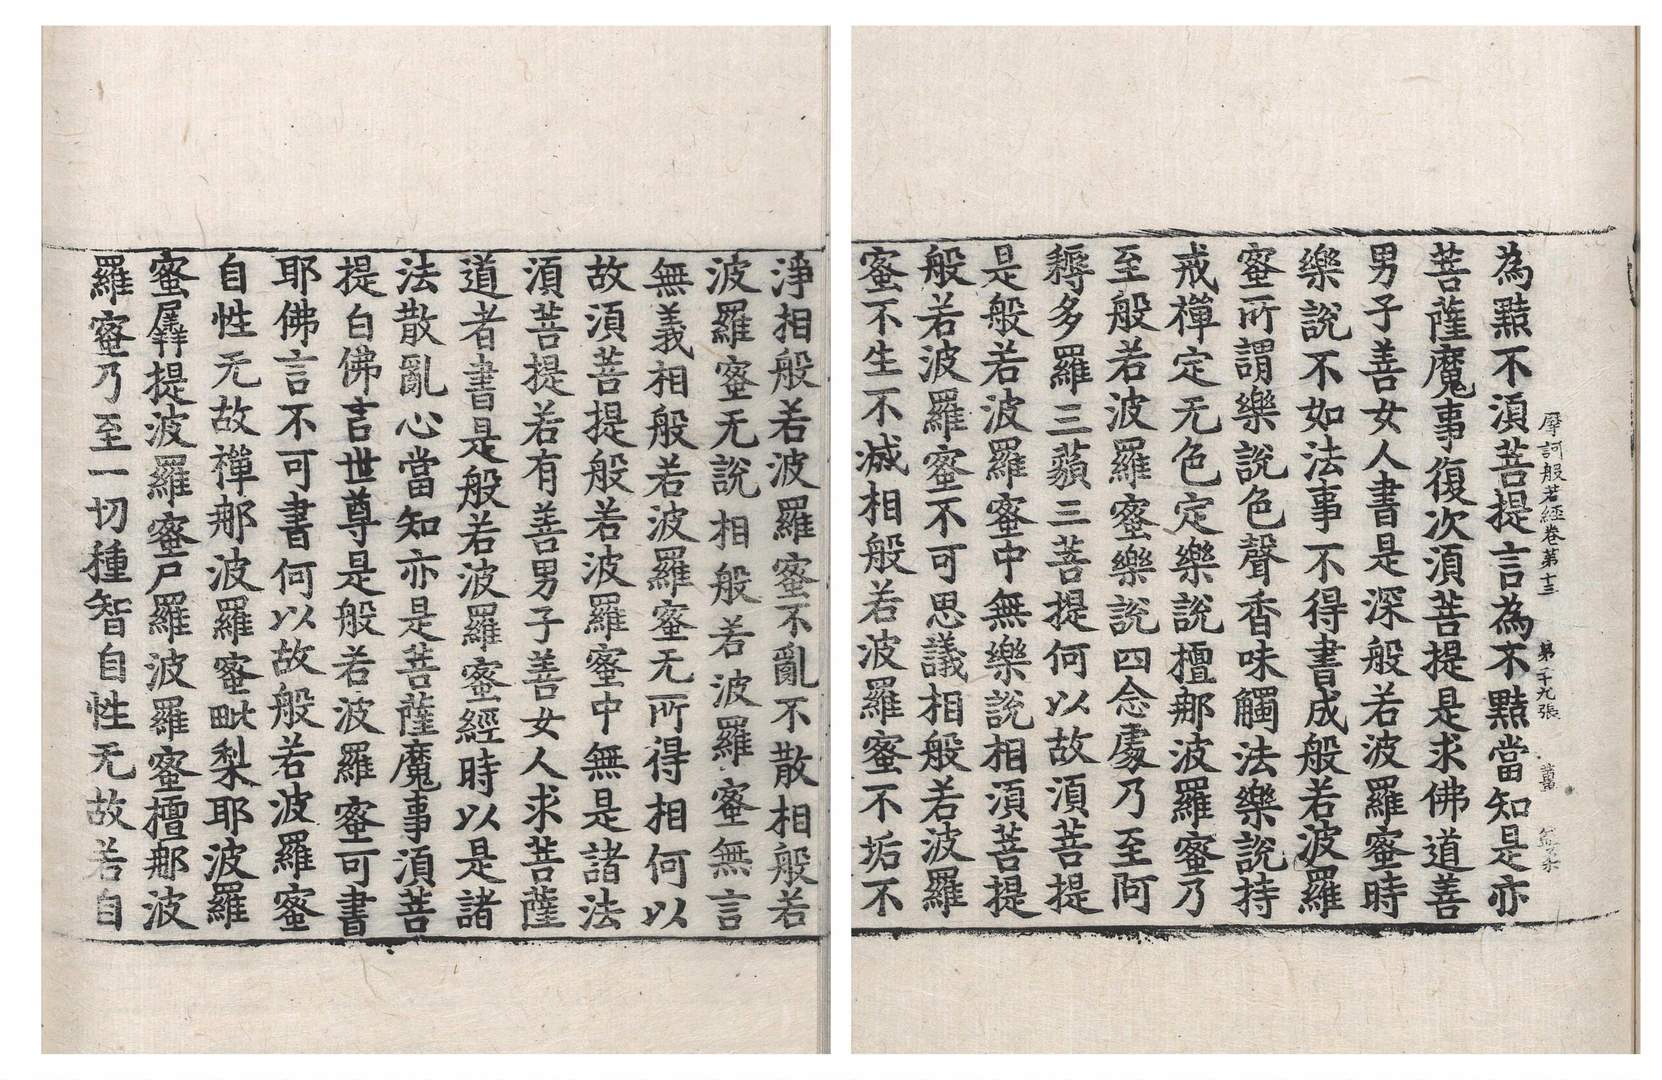 摩訶般若經卷第十三 第二十九張
為黠不湏菩提言為不黠當知是亦
菩薩魔事復次湏菩提是求佛道善
男子善女人書是深般若波羅蜜時
樂說不如法事不得書成般若波羅
蜜所謂樂說色聲香味觸法樂說持
戒禪定无色定樂說檀那波羅蜜乃
至般若波羅蜜樂說四念處乃至阿
耨多羅三藐三菩提何以故湏菩提
是般若波羅蜜中無樂說相湏菩提
般若波羅蜜不可思議相般若波羅
蜜不生不滅相般若波羅蜜不垢不
淨相般若波羅蜜不亂不散相般若
波羅蜜无說相般若波羅蜜無言
無義相般若波羅蜜无所得相何以
故湏菩提般若波羅蜜中無是諸法
湏菩提若有善男子善女人求菩薩
道者書是般若波羅蜜經時以是諸
法散亂心當知亦是菩薩魔事湏菩
提白佛言世尊是般若波羅蜜可書
耶佛言不可書何以故般若波羅蜜
自性无故禪那波羅蜜毗梨耶波羅
蜜羼提波羅蜜尸羅波羅蜜檀那波
羅蜜乃至一切種智自性无故若自